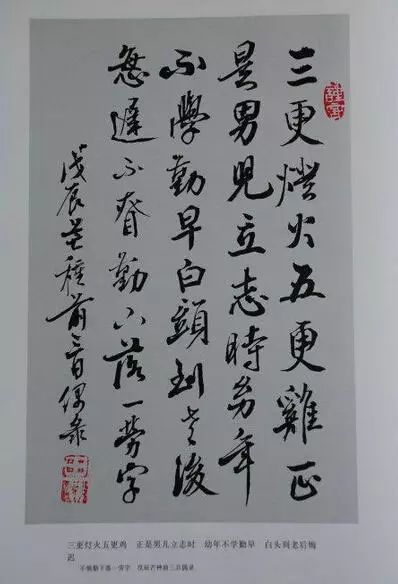 三更燈火五更雞正
是男兒立志時幼年
不學勤早白頭到老後
悔遲不勤下落一勞字
戊辰芒種前三日偶錄
三更灯火五更鸡 正是男儿立志时 幼年不学勤早 白头到老后悔
迟
勤下落一劳字 戊辰芒种前三日偶录